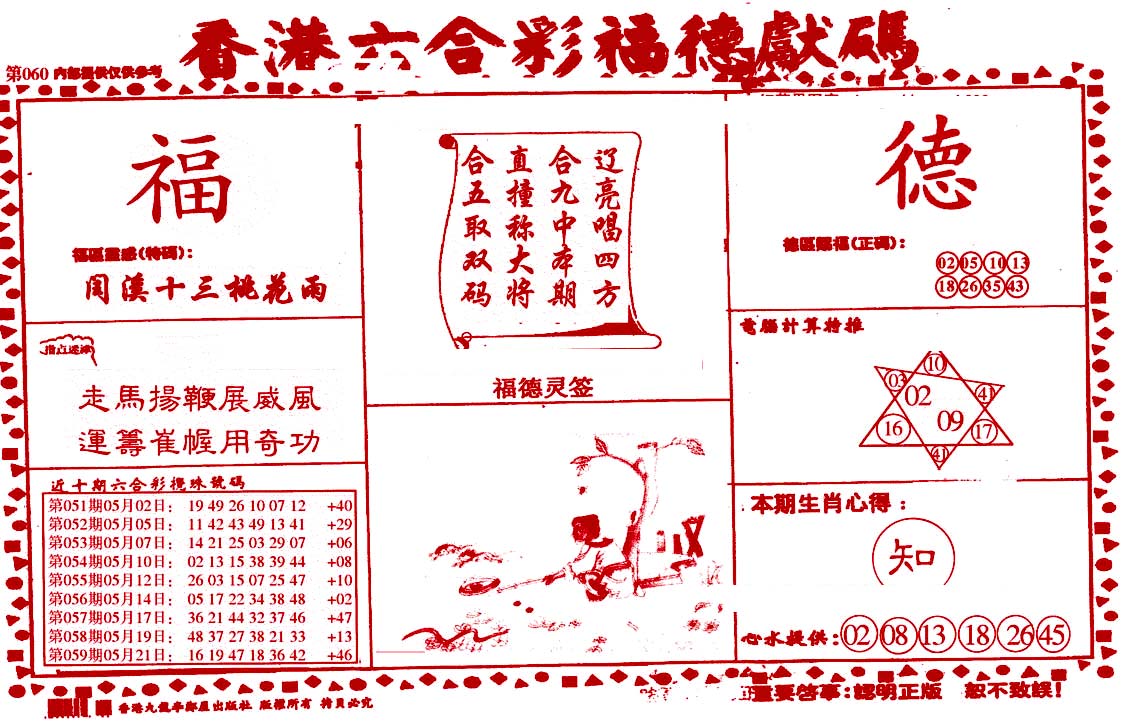 香港六合彩福德獻碼
第060 內部提供仅供參考
福
福區靈感(特碼):
閏溪十三桃花雨
指点迷津
走馬揚鞭展威風
運籌崔幄用奇功
近十期六合彩攪珠號碼
第051期05月02日: 19 49 26 10 07 12 +40
第052期05月05日: 11 42 43 49 13 41 +29
第053期05月07日: 14 21 25 03 29 07 +06
第054期05月10日: 02 13 15 38 39 44 +08
第055期05月12日: 26 03 15 07 25 47 +10
第056期05月14日: 05 17 22 34 38 48 +02
第057期05月17日: 36 21 44 32 37 46 +47
第058期05月19日: 48 37 27 38 21 33 +13
第059期05月21日: 16 19 47 18 36 42 +46
辽亮唱四方
合九中本期
直撞称大将
合五取双码
福德灵签
德
德區賜福(正碼):
02 05 10 13
18 26 35 43
電腦計算特推
10
03 41
02
09
16 17
41
本期生肖心得:
知
心水提供: 02 08 13 18 26 45
香港九龍幸鄰屋出版社 版權所有 拷貝必究
重要啓事:認明正版 恕不致誤!